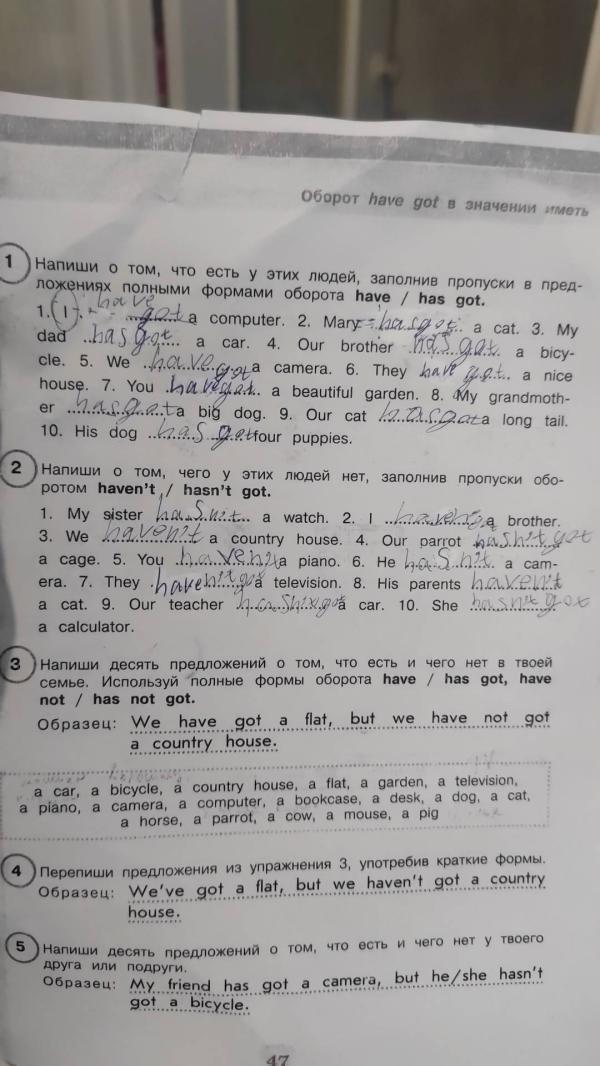 Оборот have got в значении иметь
1 Напиши о том, что есть у этих людей, заполнив пропуски в пред-
ложениях полными формами оборота have / has got.
1. I have got a computer. 2. Mary has got a cat. 3. My
dad has got a car. 4. Our brother has got a bicy-
cle. 5. We have got a camera. 6. They have got a nice
house. 7. You have got a beautiful garden. 8. My grandmoth-
er has got a big dog. 9. Our cat has got a long tail.
10. His dog has got four puppies.
2 Напиши о том, чего у этих людей нет, заполнив пропуски обо-
ротом haven't / hasn't got.
1. My sister hasn't a watch. 2. I a brother.
3. We haven't a country house. 4. Our parrot hasn't got
a cage. 5. You haven't a piano. 6. He hasn't a cam-
era. 7. They haven't got television. 8. His parents haven't
a cat. 9. Our teacher hasn't got a car. 10. She hasn't got
a calculator.
3 Напиши десять предложений о том, что есть и чего нет в твоей
семье. Используй полные формы оборота have / has got, have
not / has not got.
Образец: We have got a flat, but we have not got
a country house.
a car, a bicycle, a country house, a flat, a garden, a television,
a piano, a camera, a computer, a bookcase, a desk, a dog, a cat,
a horse, a parrot, a cow, a mouse, a pig
4 Перепиши предложения из упражнения 3, употребив краткие формы.
Образец: We've got a flat, but we haven't got a country
house.
5 Напиши десять предложений о том, что есть и чего нет у твоего
друга или подруги.
Образец: My friend has got a camera, but he/she hasn't
got a bicycle.
47